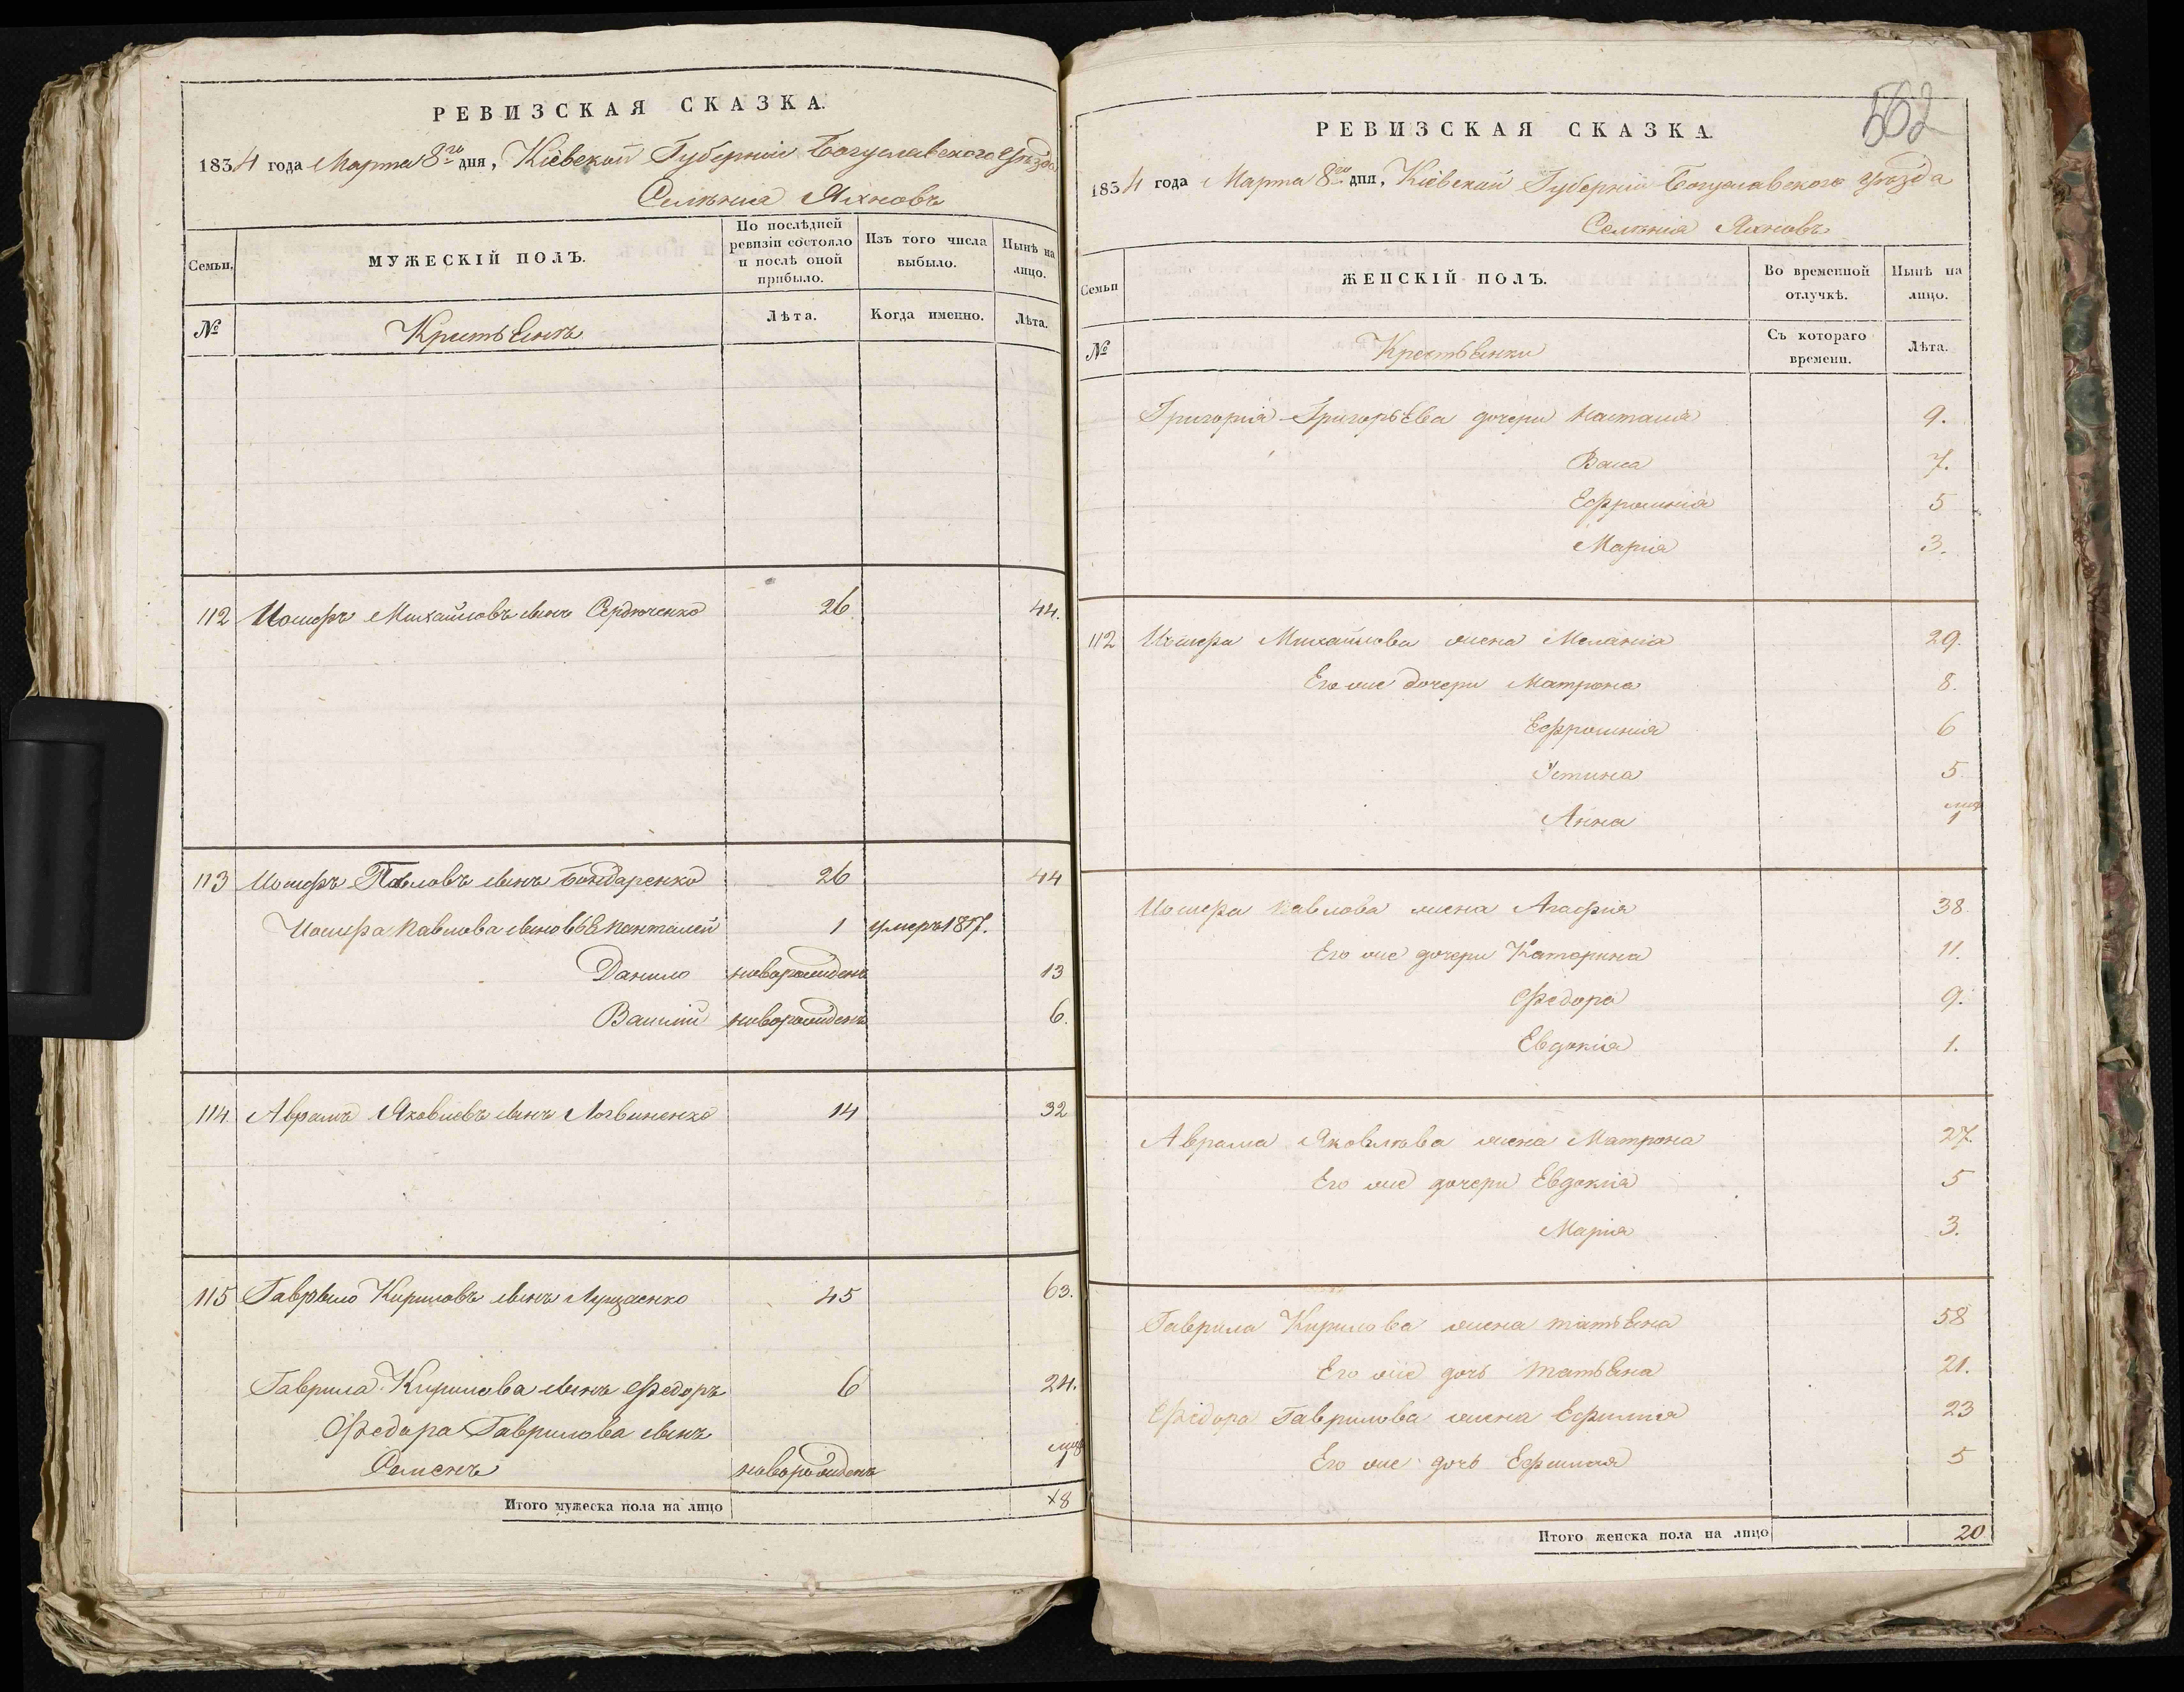 РЕВИЗСКАЯ СКАЗКА.
1834 года Марта 8го дня, Кіевской Губерніи Богуславского уѣзда
Селенія Яхновъ
Семьи.
МУЖЕСКІЙ ПОЛЪ.
По послѣдней ревизіи состояло и послѣ оной прибыло.
Изъ того числа выбыло.
Нынѣ на лицо.
№
Крестьянъ
Лѣта.
Когда именно.
Лѣта.
112 Иосифъ Михайловъ сынъ Сердюченко 26 44.
113 Иосифъ Павловъ сынъ Бондаренко 26 44
Иосифа Павлова сыновья Панталей 1 умеръ 1817.
Данило новорожденъ 13
Василій новорожденъ 6.
114 Аврамъ Яковлевъ сынъ Логвиненко 14 32
115 Гаврыло Кириловъ сынъ Лущаенко 45 63.
Гаврила Кирилова сынъ Федоръ 6 24.
Федора Гаврилова сынъ
Семенъ новорожденъ 1
Итого мужеска пола на лицо 8
562
РЕВИЗСКАЯ СКАЗКА.
1834 года Марта 8го дня, Кіевской Губерніи Богуславского уѣзда
Селенія Яхновъ
Семьи
ЖЕНСКІЙ ПОЛЪ.
Во временной отлучкѣ.
Нынѣ на лицо.
№
Крестьянки
Съ котораго времени.
Лѣта.
Григорія Григорьева дочери Настасія 9.
Васа 7.
Ефросинія 5
Марія 3.
112 Иосифа Михайлова жена Меланія 29.
Его же дочери Матрона 8.
Ефросинія 6
Устина 5.
Анна 1
Иосифа Павлова жена Агафія 38
Его же дочери Катерина 11.
Федора 9.
Евдокія 1.
Аврама Яковлева жена Матрона 27.
Его же дочери Евдокія 5
Марія 3.
Гаврила Кирилова жена Татьяна 58
Его же дочь Татьяна 21.
Федора Гаврилова жена Ефимія 23
Его же дочь Ефимія 5
Итого женска пола на лицо 20